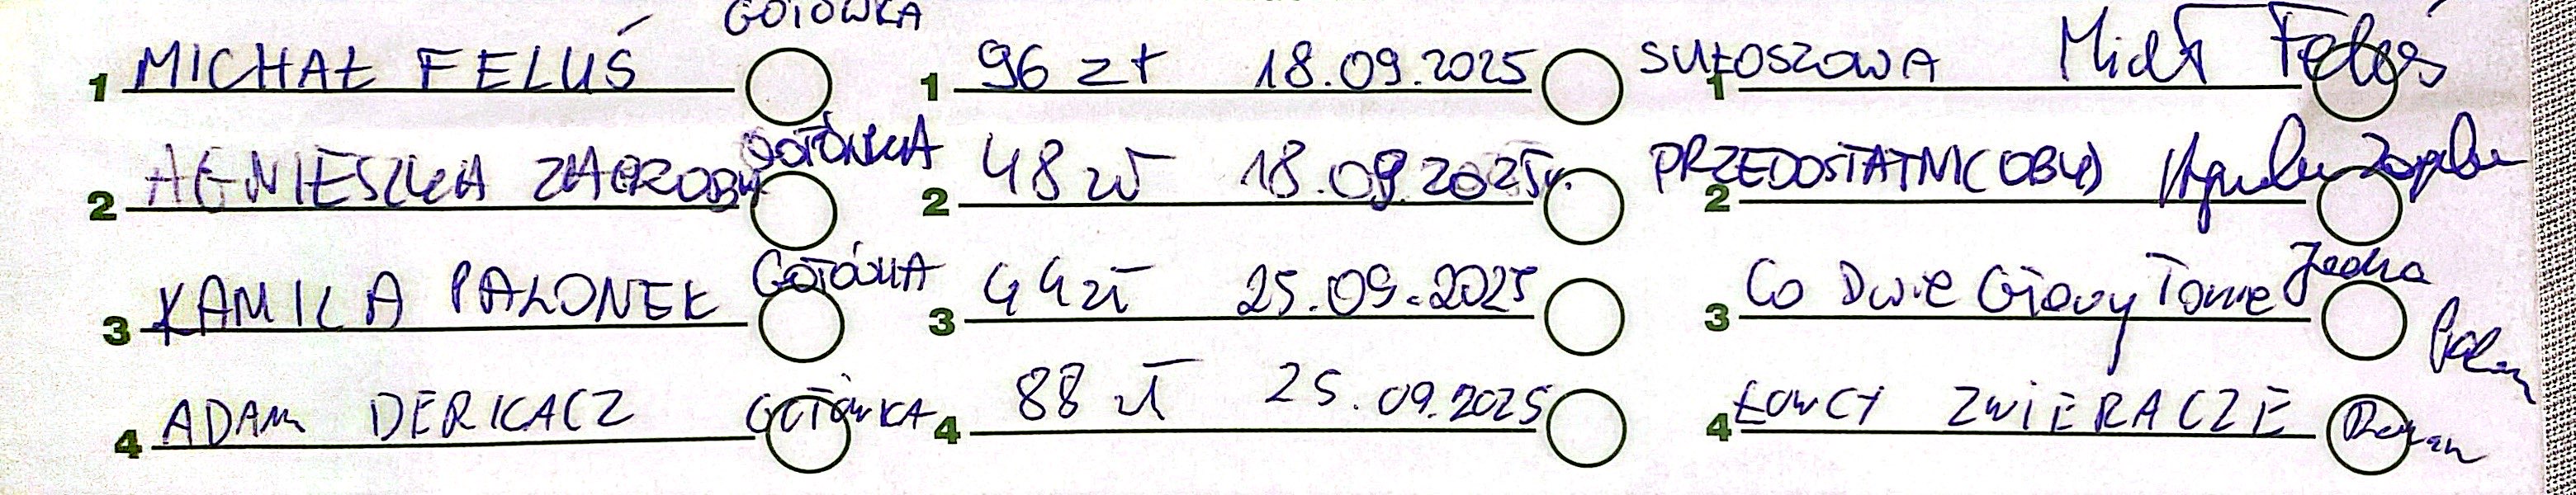 GOTÓWKA
1 MICHAŁ FELUŚ 1 96 zł 18.09.2025 1 SUŁOSZOWA Michał Feluś
2 AGNIESZKA ZAGROBY GOTÓWKA 2 48 zł 18.09.2025r. 2 PRZEDOSTATNI(OBY)
3 KAMILA PALONEK GOTÓWKA 3 44 zł 25.09.2025 3 Co Dwie Głowy To nie Jedna
4 ADAM DERKACZ GOTÓWKA 4 88 zł 25.09.2025 4 ŁOWCY ZWIERACZE